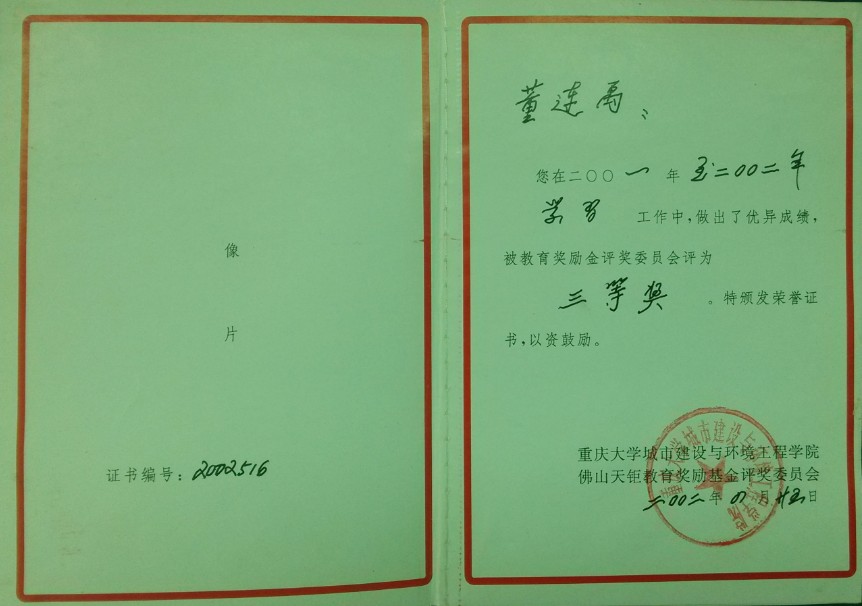 像
片
证书编号：2002516
董连禹：
您在二〇〇一年至二〇〇二年
学习 工作中，做出了优异成绩，
被教育奖励金评奖委员会评为
三等奖 。特颁发荣誉证
书，以资鼓励。
重庆大学城市建设与环境工程学院
佛山天钜教育奖励基金评奖委员会
二〇〇二年 月 日